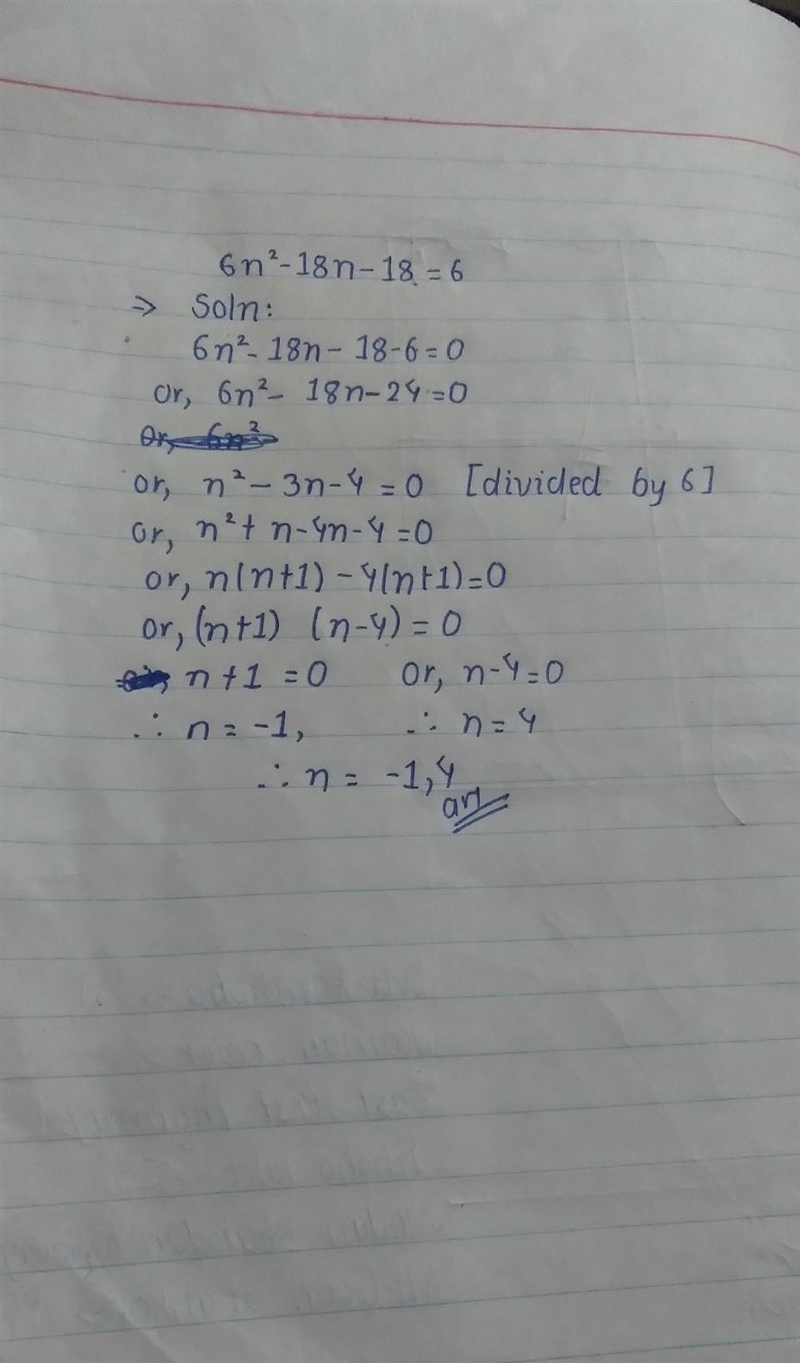 6n²-18n-18=6
⇒ Soln:
6n²-18n-18-6=0
or, 6n²-18n-24=0
Or, 6n²
or, n²-3n-4=0 [divided by 6]
or, n²+n-4n-4=0
or, n(n+1)-4(n+1)=0
or, (n+1) (n-4)=0
n+1=0 or, n-4=0
∴ n=-1, ∴ n=4
∴ n= -1,4